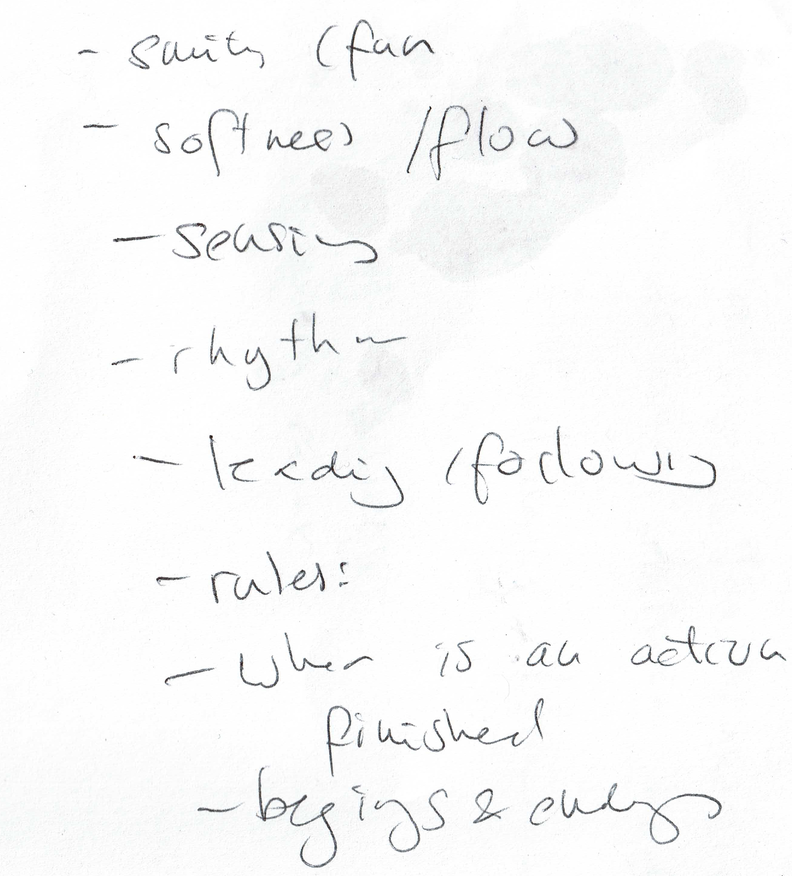 - sanity / fun
- softness / flow
- sensing
- rhythm
- leading / following
- rules:
- when is an action
finished
- beginings & endings